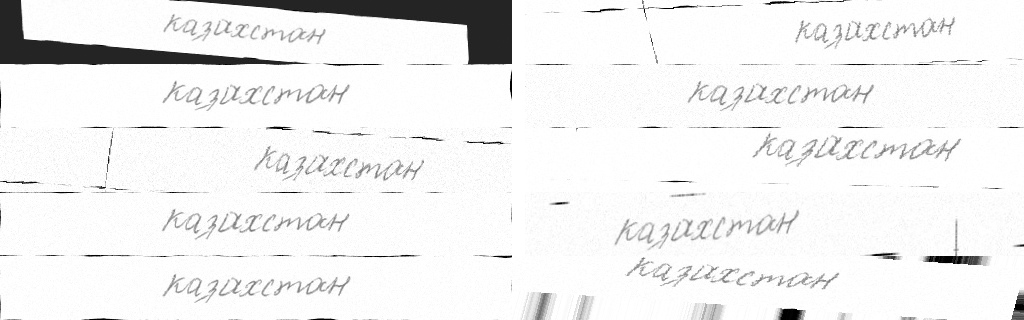 казахстан
казахстан
казахстан
казахстан
казахстан
казахстан
казахстан
казахстан
казахстан
казахстан